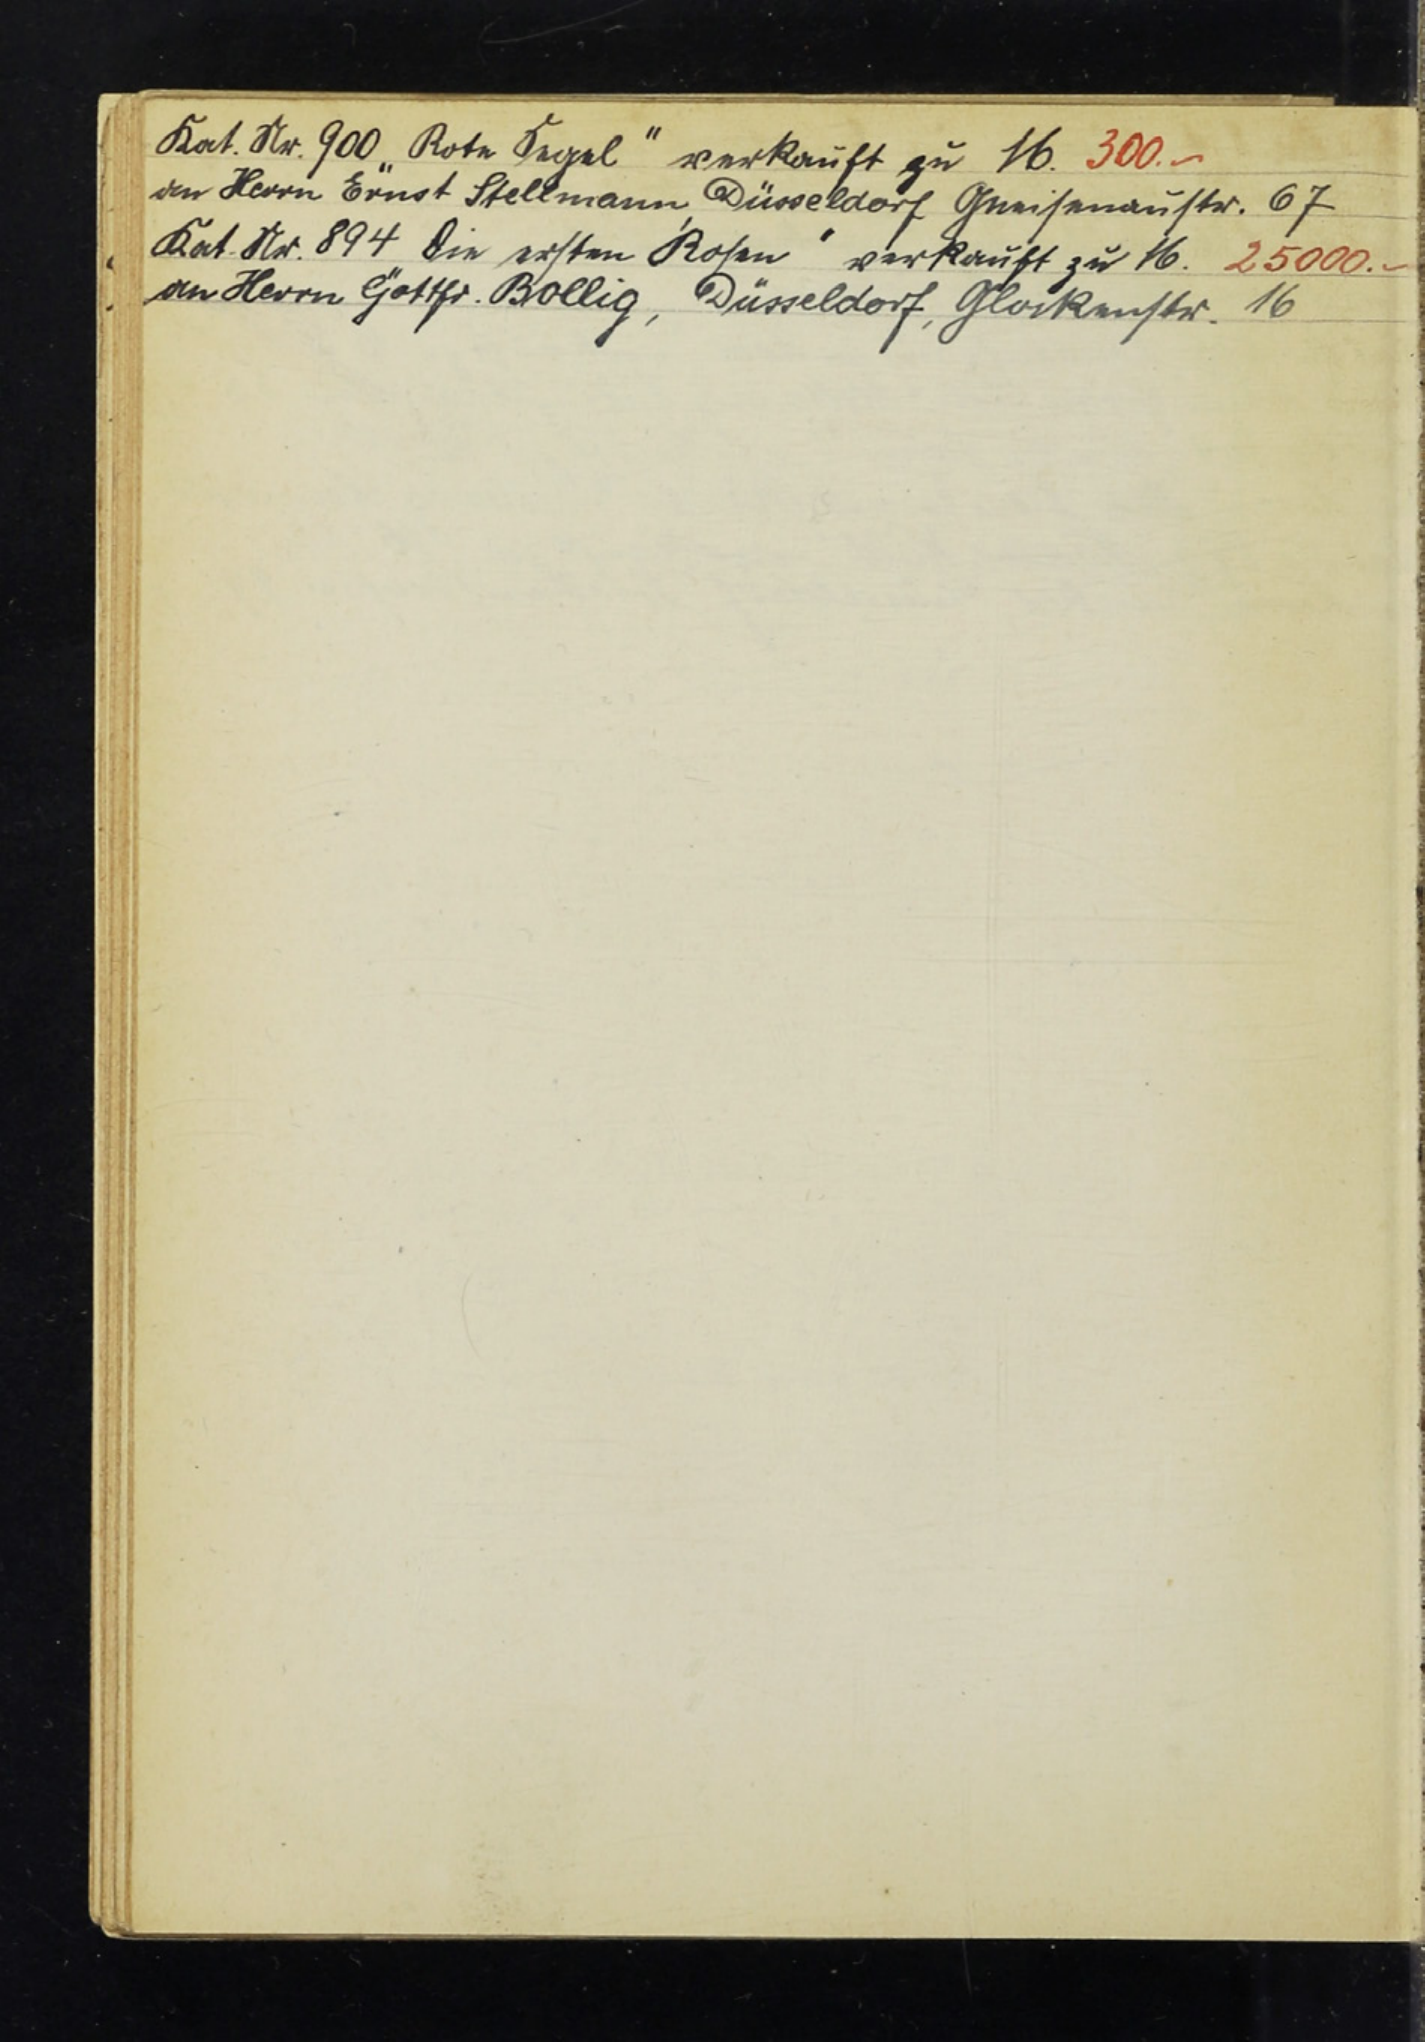 Kat. Nr. 900 „Rote Segel" verkauft zu M. 300.-
an Herrn Ernst Stellmann, Düsseldorf Gneisenaustr. 67
Kat. Nr. 894 „Die ersten Rosen" verkauft zu M. 25000.-
an Herrn Gottfr. Bollig, Düsseldorf, Glockenstr. 16